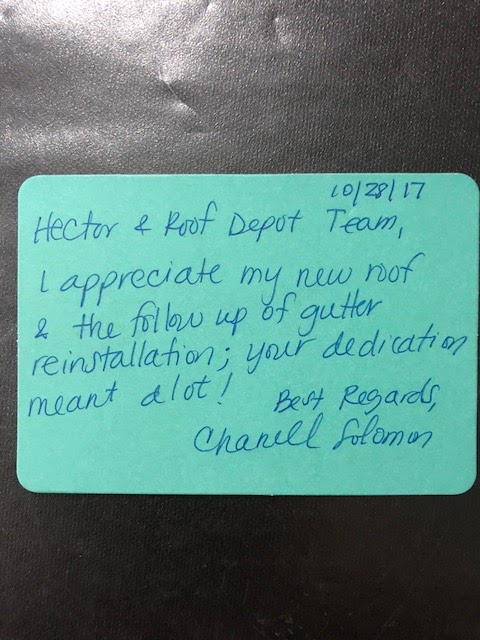 10/28/17
Hector & Roof Depot Team,
I appreciate my new roof
& the follow up of gutter
reinstallation; your dedication
meant alot!
Best Regards,
Chanell Solomon